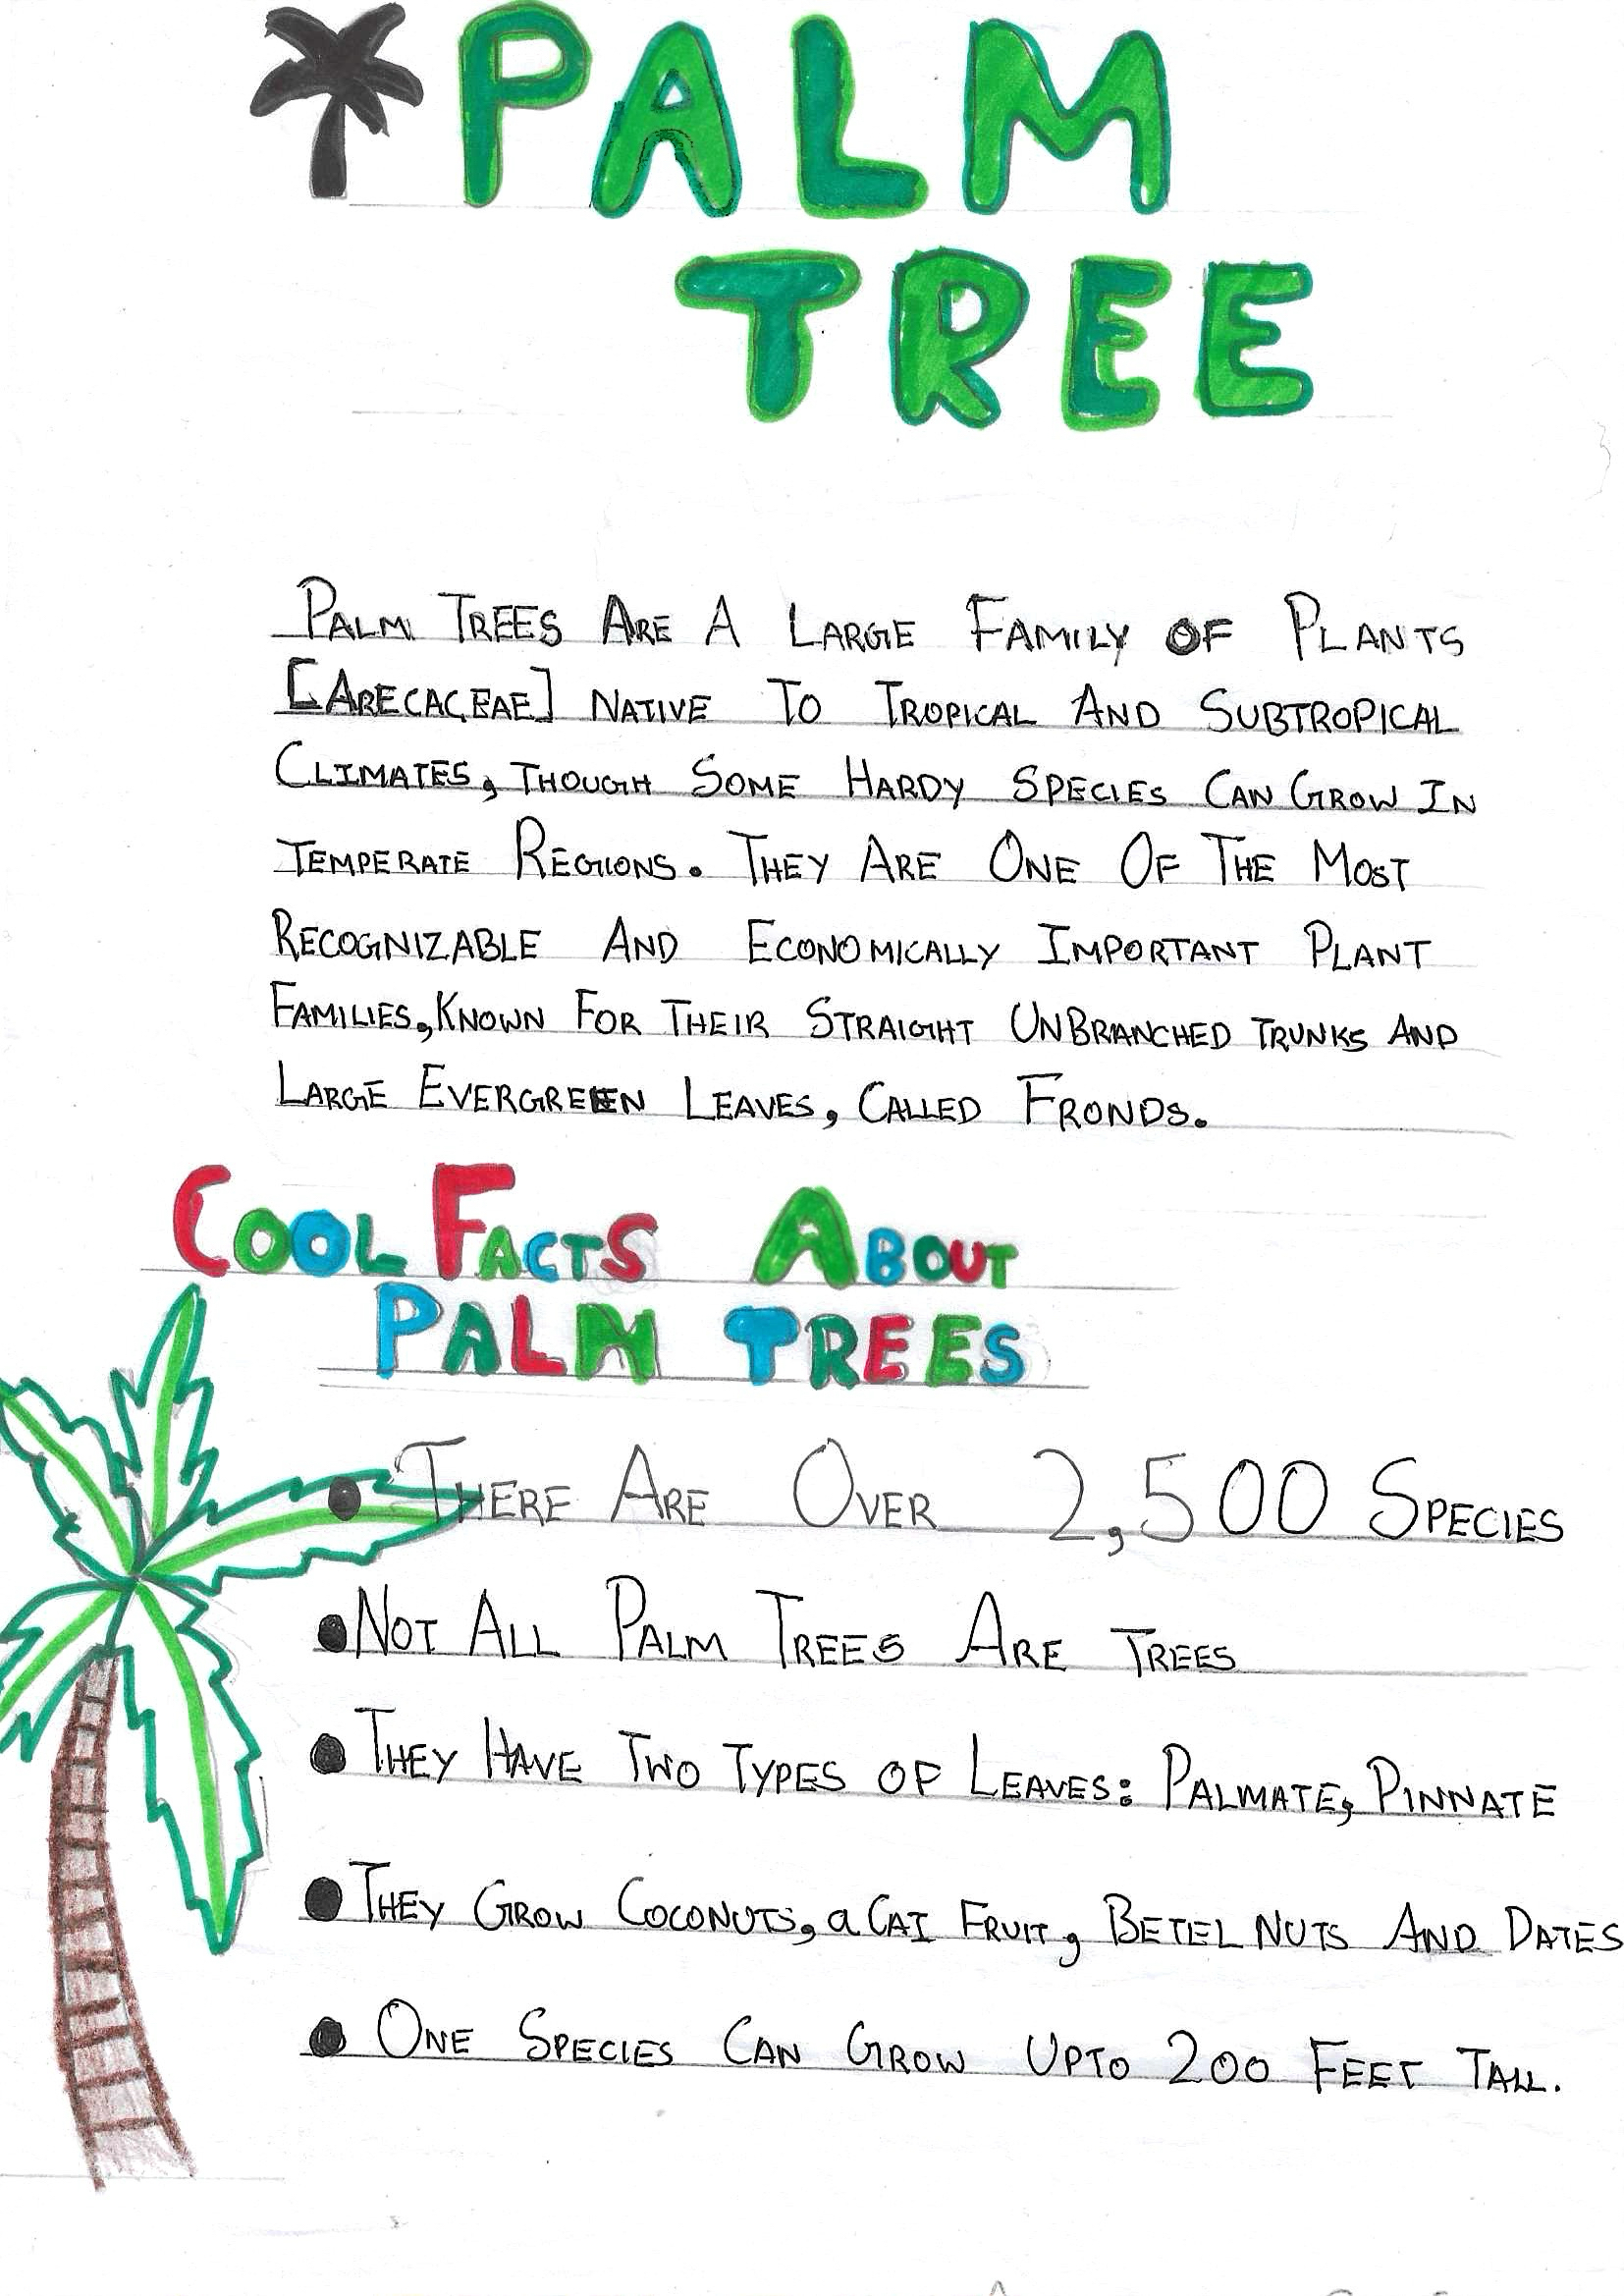 PALM
TREE
PALM TREES ARE A LARGE FAMILY OF PLANTS
[ARECACEAE] NATIVE TO TROPICAL AND SUBTROPICAL
CLIMATES, THOUGH SOME HARDY SPECIES CAN GROW IN
TEMPERATE REGIONS. THEY ARE ONE OF THE MOST
RECOGNIZABLE AND ECONOMICALLY IMPORTANT PLANT
FAMILIES, KNOWN FOR THEIR STRAIGHT UNBRANCHED TRUNKS AND
LARGE EVERGREEN LEAVES, CALLED FRONDS.
COOL FACTS ABOUT
PALM TREES
• THERE ARE OVER 2,500 SPECIES
• NOT ALL PALM TREES ARE TREES
• THEY HAVE TWO TYPES OF LEAVES: PALMATE, PINNATE
• THEY GROW COCONUTS, aCAI FRUIT, BETEL NUTS AND DATES
• ONE SPECIES CAN GROW UPTO 200 FEET TALL.